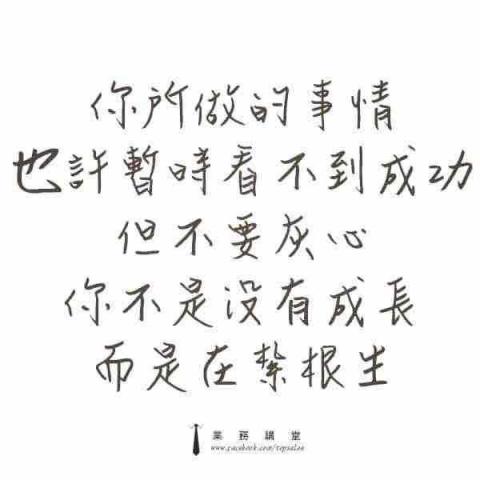 你所做的事情
也許暫時看不到成功
但不要灰心
你不是沒有成長
而是在紮根生
業務講堂
www.facebook.com/topsales